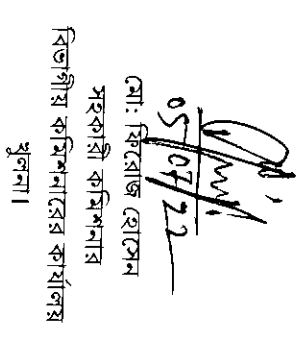 05 07 22
মো: ফিরোজ হোসেন
সহকারী কমিশনার
বিভাগীয় কমিশনারের কার্যালয়
খুলনা।